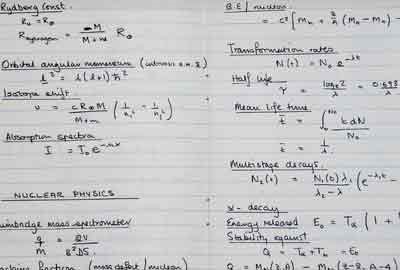 Rydberg Const.
R₀ = R∞
R hydrogen = M / M+m R∞
Orbital angular momentum (intrinsic
l² = l(l+1)ħ²
Isotope shift.
υ = cR∞M / M+m (1/n₁² - 1/n₂²)
Absorption spectra
I = I₀e
NUCLEAR PHYSICS
mass spectrometer
q/m = 2V / B²DS
fraction (mass defect / nucleon)
B.E / nucleon
= c² [Mn + Z/A (MH - Mn) -
Transformation rates
N(t) = N₀ e^-λt
Half life
τ = loge2 / λ = 0.693
Mean life time
t̄ = ∫ t dN / N₀
t̄ = 1/λ
Multistage decays.
N₂(t) = N₁(0) λ₁ / λ₂ - λ₁ (e^-λ₁t -
α - decay
Energy released E₀ = Tα (1 +
Stability against
Q = Tα + Tb = E₀
Q = (Z, A) - (Z-2, A-4)